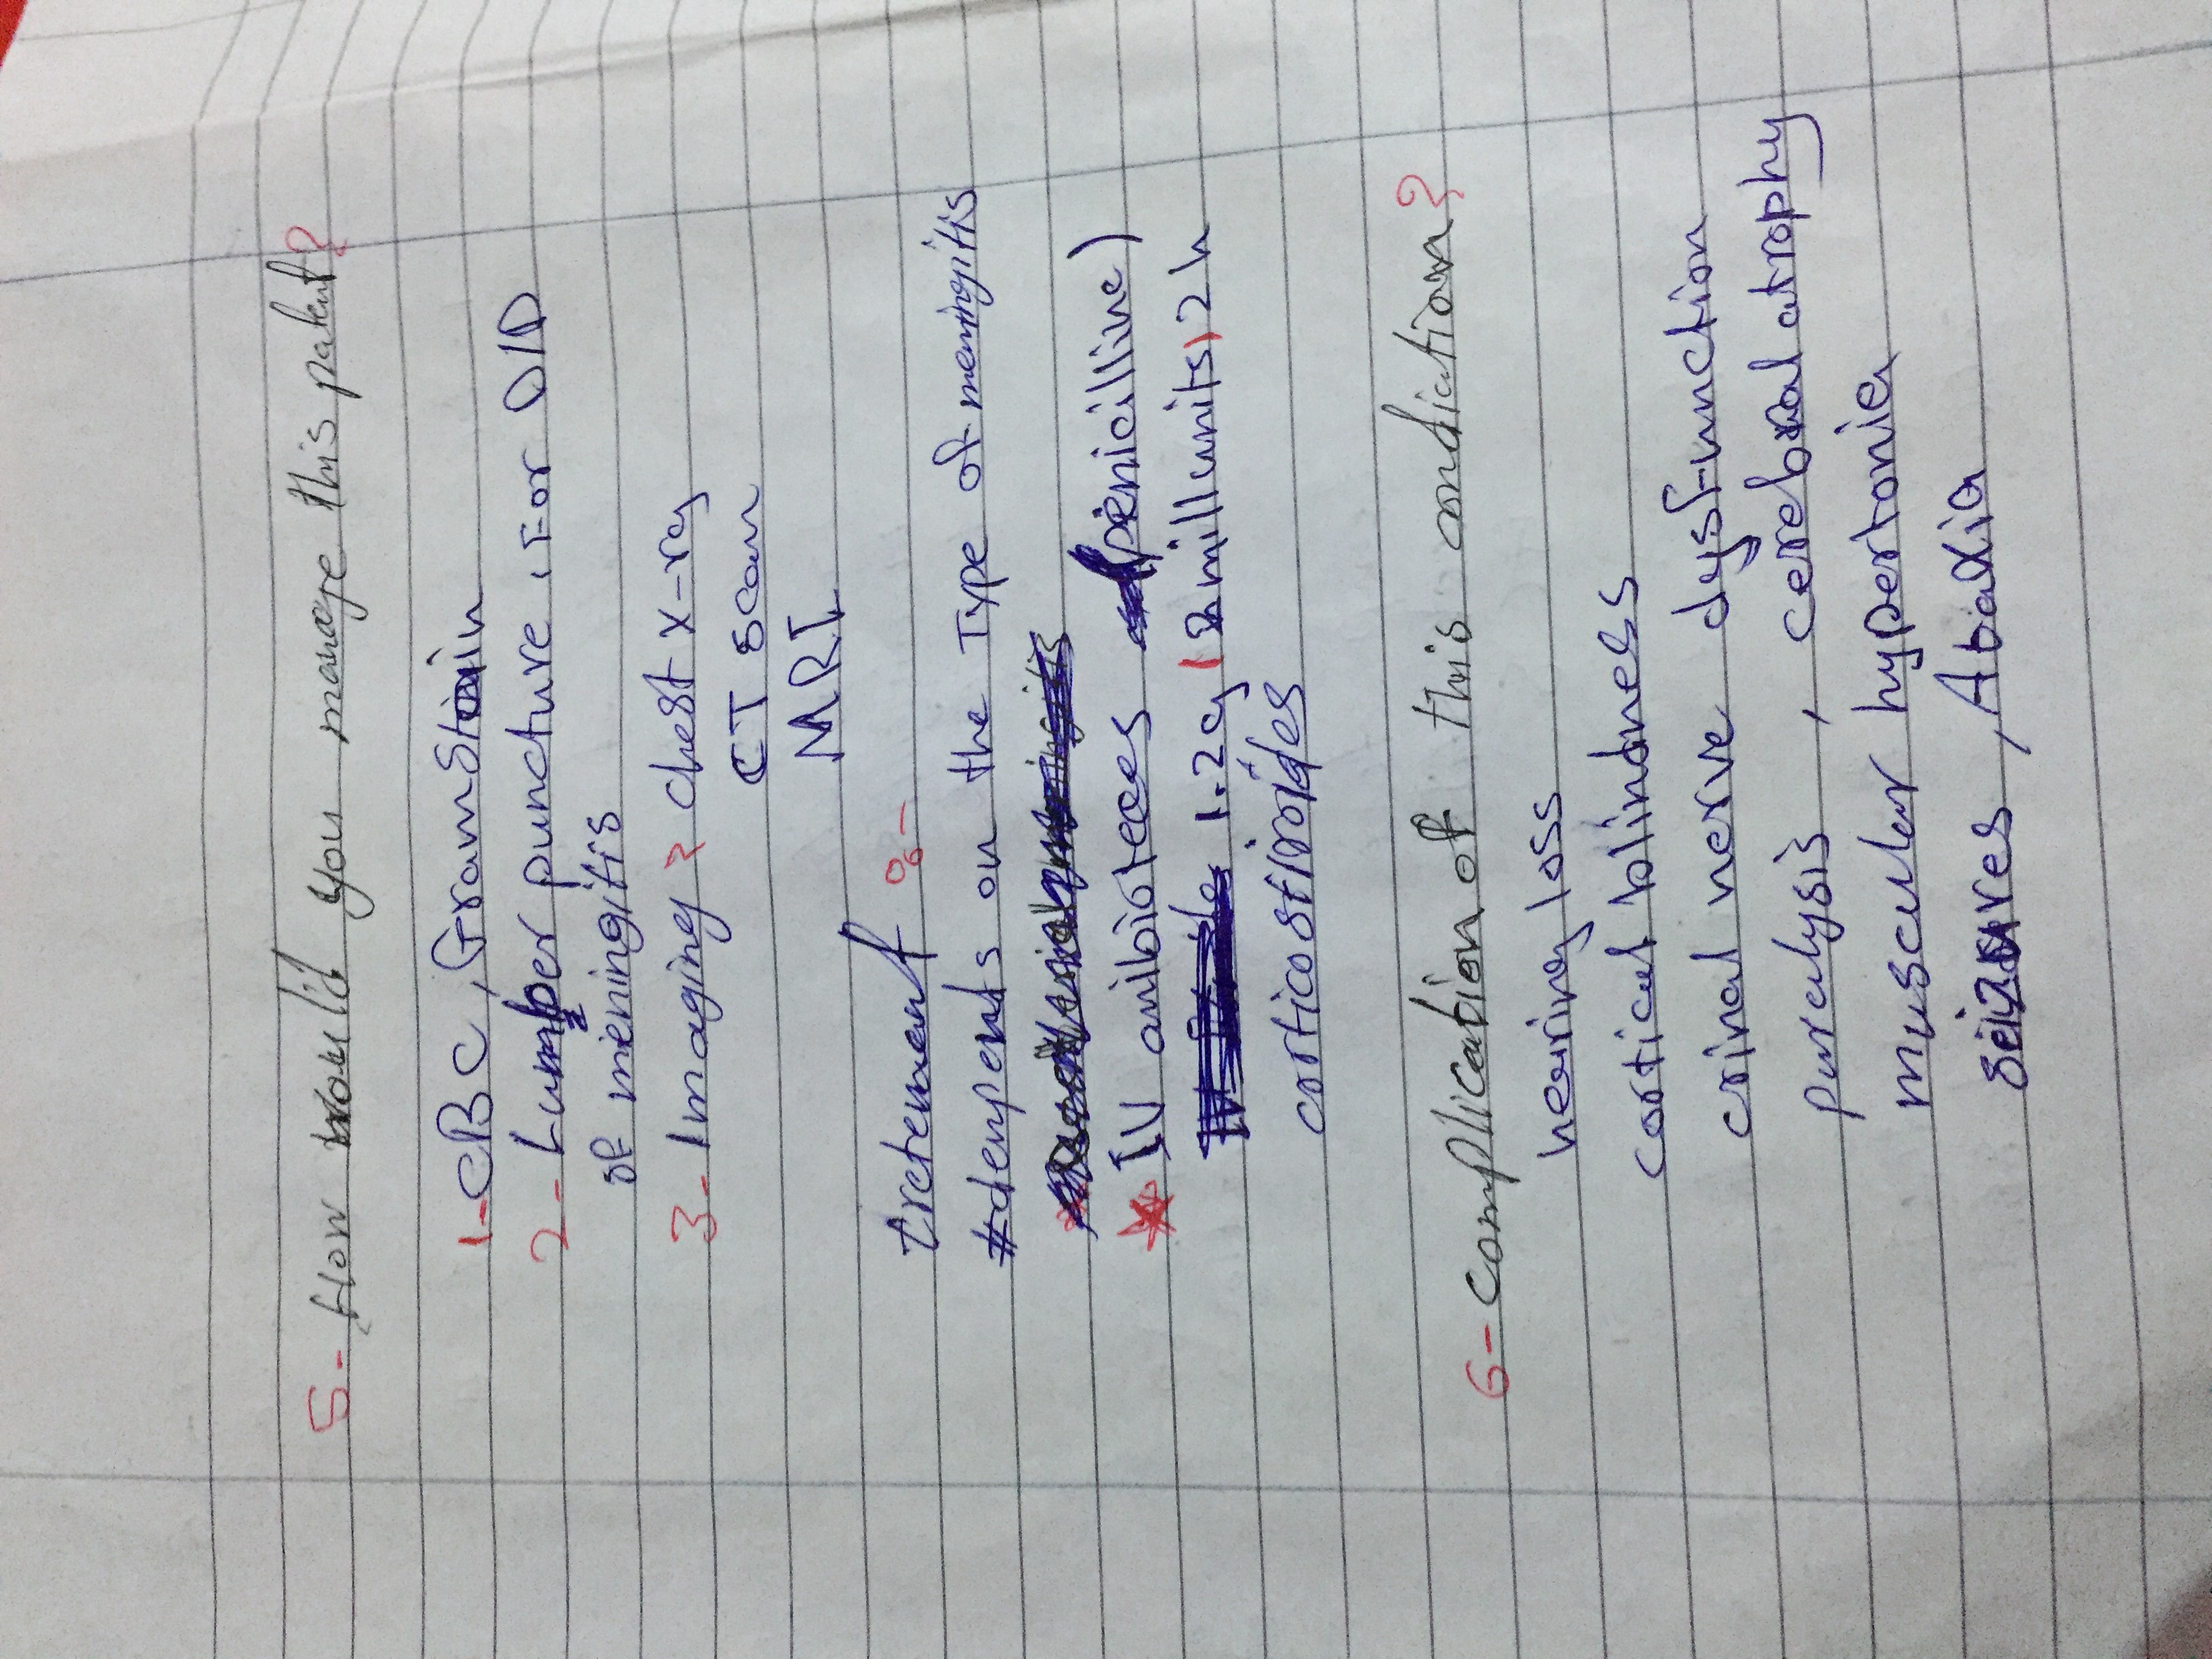 5- How would you manage this patent?
1- CBC, Gram Stain
2- Lumber puncture, For DID
of meningitis
3- Imaging : chest x-ray
CT scan
MRI
tretement :-
# dempends on the Type of meningitis
* IV anibioteces penicilline)
1.2g, 2 mill units, 2h
corticostiroides
6- Complication of this condiction?
hearing loss
cortical blindnes
crinal nerve dysfunction
paralysis, cerebral atrophy
muscular hypertonia
seizures, Ataxia